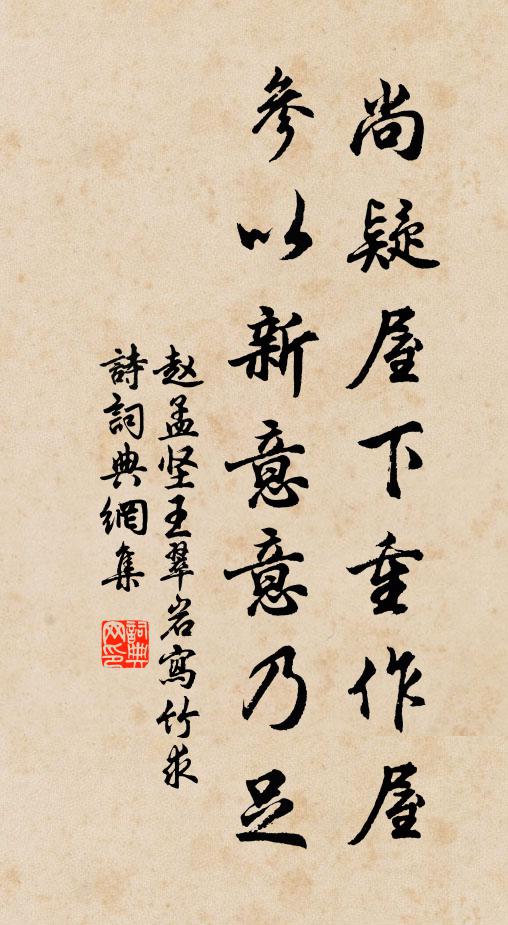 尚疑屋下重作屋
參以新意意乃足
赵孟坚王翠岩寫竹求
詩詞典網集
詞典網印